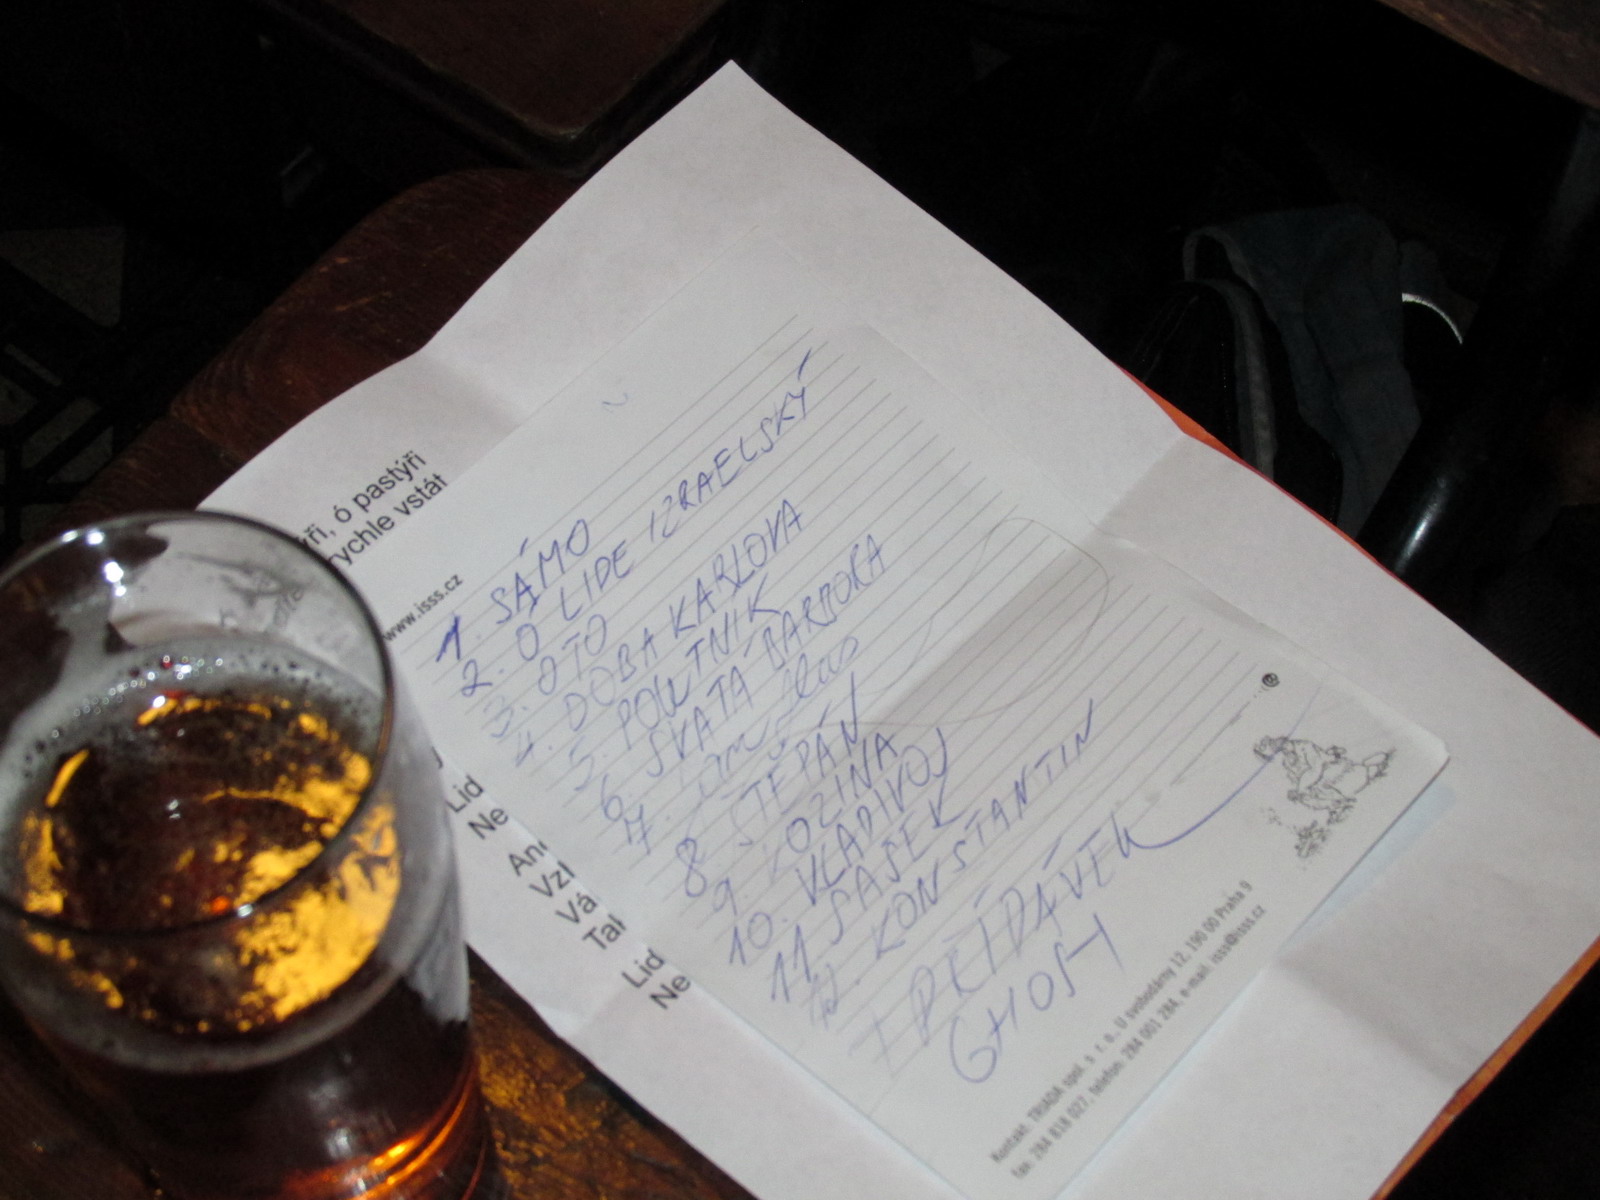 ři, ó pastýři
rychle vstát
www.isss.cz
1. SÁMO
2. Ó LIDE IZRAELSKÝ
3. OTO
4. DOBA KARLOVA
5. POUTNIK
6. SVATÁ BARBORA
7.
8. ŠTĚPÁN
9. KOZINA
10. VLADIVOJ
11. ŠAŠEK
12. KONSTANTIN
+ PŘÍDÁVEK
GHOST
Lid
Ne
An
Vzl
Vá
Tal
Lid
Ne
Kontakt: TRIADA spol. s r. o., U svobodárny 12, 190 00 Praha 9
fax: 284 818 027, telefon: 284 001 284, e-mail: isss@isss.cz